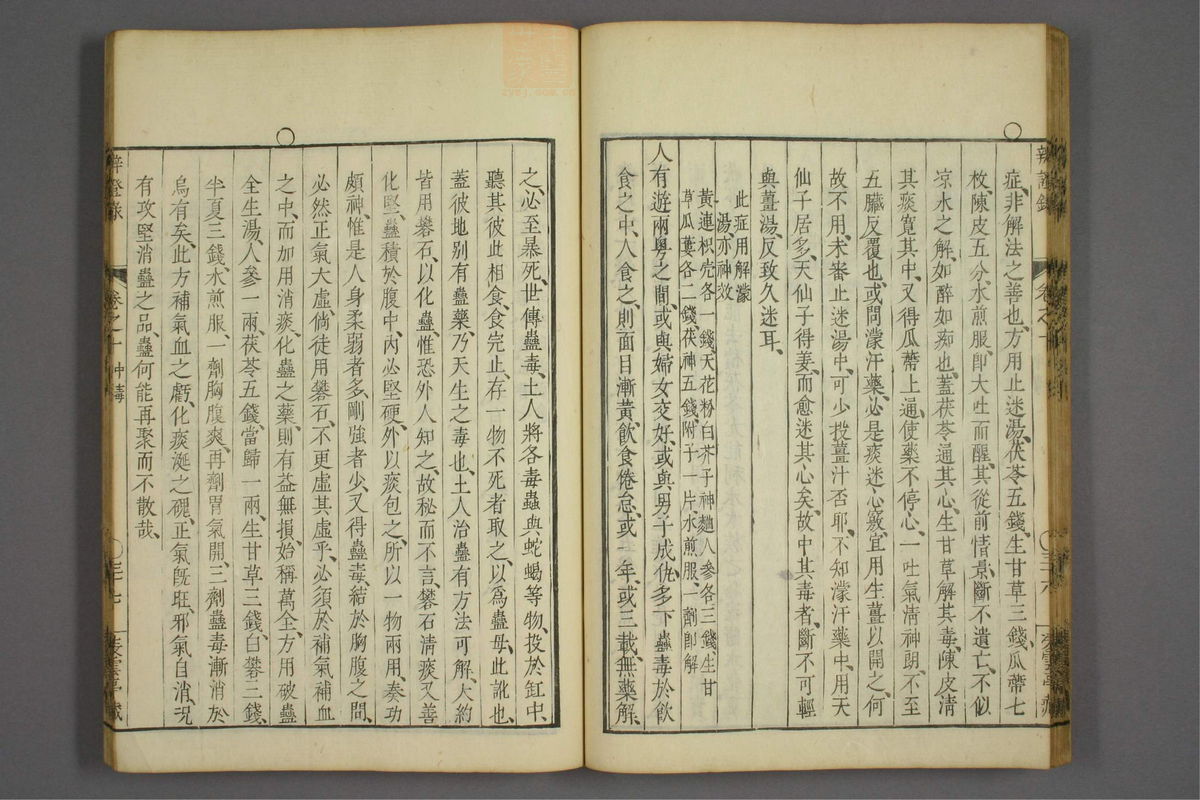 症、非解法之善也、方用止迷湯、茯苓五錢、生甘草三錢、瓜蒂七
枚、陳皮五分、水煎服、卽大吐而醒、其從前情景、斷不遺亡、不似
凉水之解、如醉如痴也、蓋茯苓通其心、生甘草解其毒、陳皮淸
其痰、寛其中、又得瓜蒂上通、使藥不停心、一吐氣淸神朗、不至
五臟反覆也、或問濛汗藥、必是痰迷心竅、宜用生薑以開之、何
故不用、未審止迷湯中、可少投薑汁否耶、不知濛汗藥中、用天
仙子居多、天仙子得姜、而愈迷其心矣、故中其毒者、斷不可輕
與薑湯、反致久迷耳、
此症用解濛
湯、亦神效
黃連枳壳各一錢、天花粉白芥子神麯人參各三錢、生甘
草瓜蔞各二錢、茯神五錢、附子一片、水煎服、一劑卽解
人有遊兩粵之間、或與婦女交好、或與男子成仇、多下蠱毒於飮
食之中、人食之、則面目漸黃、飮食倦怠、或一年、或三載、無藥解、
辨證錄
卷之十
之必至暴死、世傳蠱毒、土人將各毒蟲與蛇蝎等物、投於缸中、
聽其彼此相食、食完止、存一物不死者取之、以爲蠱母、此訛也、
蓋彼地别有蠱藥、乃天生之毒也、土人治蠱有方法可解、大約
皆用礬石、以化蠱、惟恐外人知之、故秘而不言、礬石淸痰又善
化堅、蠱積於腹中、內必堅硬、外以痰包之、所以一物兩用、奏功
頗神、惟是人身柔弱者多、剛強者少、又得蠱毒、結於胸腹之間、
必然正氣大虛、倘徒用礬石、不更虛其虛乎、必須於補氣補血
之中、而加用消痰、化蠱之藥、則有益無損、始稱萬全、方用破蠱
全生湯、人參一兩、茯苓五錢、當歸一兩、生甘草三錢、白礬三錢、
半夏三錢、水煎服、一劑胸腹爽、再劑胃氣開、三劑蠱毒漸消於
烏有矣、此方補氣血之虧、化痰涎之礙、正氣旣旺、邪氣自消、况
有攻堅消蠱之品、蠱何能再聚而不散哉、
卷之十 中毒